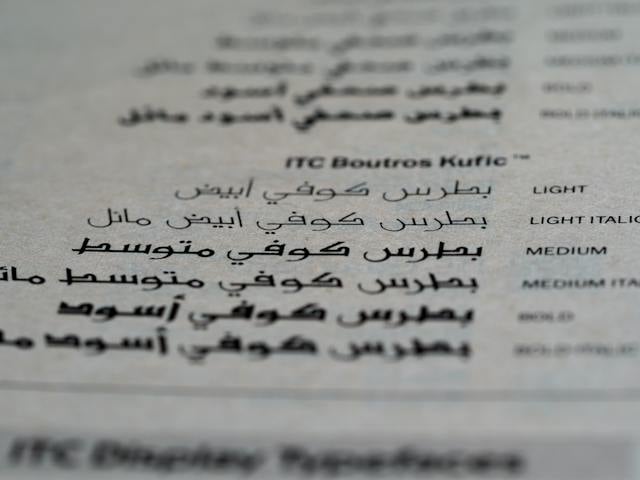 بطرس صحفي أسود BOLD
بطرس صحفي أسود مائل BOLD ITALIC
ITC Boutros Kufic™
بطرس كوفي أبيض LIGHT
بطرس كوفي أبيض مائل LIGHT ITALIC
بطرس كوفي متوسط MEDIUM
بطرس كوفي متوسط مائل MEDIUM ITA
بطرس كوفي أسود BOLD
بطرس كوفي أسود BOLD ITALIC
ITC Display Typefaces